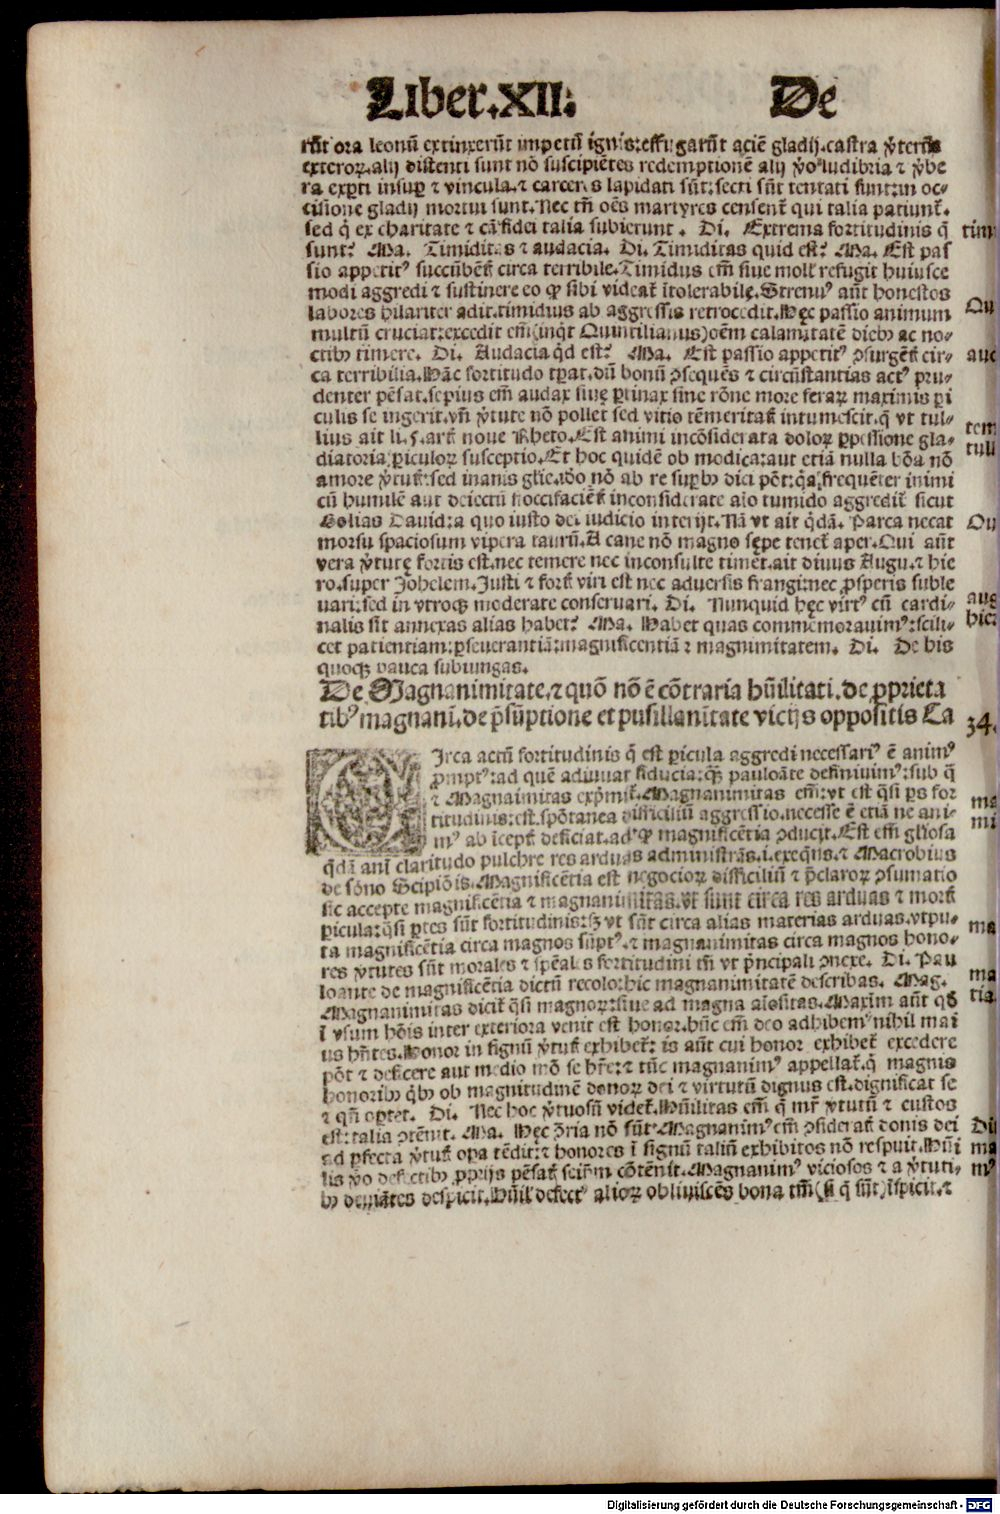 Liber.XII: De
rūt ora leonū extinxerūt impetū ignis:effugarūt aciē gladij.castra
exteroꝝ.alij distenti sunt nō suscipiētes redemptionē alij ꝟo ludibria ⁊ ꝟbe
ra expti insuꝑ ⁊ vincula.⁊ carceres lapidati sūt:secti sūt tentati sunt:in oc⸗
cisione gladij mortui sunt.Nec tn̄ oēs martyres censent᷑ qui talia patiunt᷑.
sed q̄ ex charitate ⁊ cā fidei talia subierunt. Di. Extrema fortitudinis q̄
sunt? Ma. Timiditas ⁊ audacia. Di. Timiditas quid est? Ma. Est pas
sio appetitꝰ succūbēt᷑ circa terribile.Timidus em̄ siue moll᷑ refugit huiusce
modi aggredi ⁊ sustinere eo ꝙ sibi videat᷑ ītolerabile.Strenuꝰ aūt honestos
labores hilariter adit.timidus ab aggressis retrocedit.Hęc passio animum
multū cruciat:excedit em̄ (inqͭ Quintilianus) oēm calamitatē diebꝰ ac no⸗
ctibꝰ timere. Di. Audacia qd̄ est? Ma. Est passio appetitꝰ ꝯsurgēt᷑ cir⸗
ca terribilia.Hāc fortitudo tꝑat.dū bonū ꝯsequēs ⁊ circūstantias actꝰ pru⸗
denter pēsat.sepius em̄ audax siue ꝑtinax sine rōne more feraꝝ maximis ꝑi
culis se ingerit.vn̄ ꝟtute nō pollet sed vitio tēmeritat᷑ intumescit.q̄ vt tul⸗
lius ait li.5.art᷑ noue Rheto.Est animi incōsiderata doloꝝ ꝑpessione gla⸗
diatoria ꝑiculoꝝ susceptio.Et hoc quidē ob modica:aut etiā nulla bōa nō
amore ꝟtut᷑:sed inanis glīe.iō nō ab re suꝑbꝰ dici pōt:qꝛ frequēter inimi
cū humilē aut deiectū floccifaciēt᷑ inconsiderate aīo tumido aggredit᷑ sicut
Golias Dauid:a quo iusto dei iudicio interijt.Nā vt ait qdā. Parca necat
morsu spaciosum vipera taurū.A cane nō magno sępe tenet᷑ aper.Qui aūt
vera ꝟtutę fortis est.nec temere nec inconsulte timet.ait diuus Augu.⁊ hie
ro.super Johelem.Justi ⁊ fort᷑ viri est nec aduersis frangi:nec ꝓsperis suble
uari:sed in vtroqꝫ moderate conseruari. Di. Nunquid hęc virtꝰ cū cardi⸗
nalis sit annexas alias habet? Ma. Habet quas commemorauimꝰ:scili⸗
cet patientiam:ꝑseuerantiā:magnificentiā ⁊ magnimitatem. Di. De his
quoqꝫ pauca subiungas.
De Magnanimitate.⁊ quō nō ē cōtraria hūilitati.de ꝓprieta
tibꝰ magnani.de p̄sūptione et pusillanitate vicijs oppositis Ca
34.
CIrca actū fortitudinis q̄ est ꝑicula aggredi necessariꝰ ē animꝰ
ꝓmptꝰ:ad quē adiuuat fiducia:qꝫ pauloāte definiuimꝰ:sub q̄
⁊ Magnaīmitas exp̄mit᷑.Magnanimitas em̄:vt est qͣsi ꝑs for
titudinis:est.spōtanea difficiliū aggressio.necesse ē etiā ne ani⸗
mꝰ ab īcept᷑ deficiat.ad qͦ magnificētia ꝯducit.Est em̄ gl̄iosa
qdā anī claritudo pulchre res arduas administrās.i.exequēs.⁊ Macrobius
de sōno Scipiōis.Magnificētia est negocioꝝ difficiliū ⁊ p̄claroꝝ ꝯsumatio
sic accepte magnificētia ⁊ magnanimitas.vt sunt circa res arduas ⁊ mort᷑
ꝑicula:qͣsi ꝑtes sūt fortitudinis:sꝫ vt sūt circa alias materias arduas.vtpu⸗
ta magnificētia circa magnos sūptꝰ.⁊ magnanimitas circa magnos hono⸗
res ꝟtutes sūt morales ⁊ spēales fortitudini tn̄ vt p̄ncipali ꝯnexe. Di. Pau
loante de magnificētia dictū recolo:hic magnanimitatē describas. Mag.
Magnanimitas dicit᷑ qͣsi magnoꝝ:siue ad magna aīositas.Maxim̄ aūt qd̄
ī vsum hoīs inter exteriora venit est honor.hūc em̄ deo adhibemꝰ nihil mai
us hn̄tes.Honor in signū ꝟtut᷑ exhibet᷑: is aūt cui honor exhibet᷑ excedere
pōt ⁊ deficere aut medio mō se hr̄e:⁊ tūc magnanimꝰ appellat᷑.q̄ magnis
honoribꝰ qͥbꝰ ob magnitudinē donoꝝ dei ⁊ virtutū dignus est.dignificat se
⁊ qn̄ oꝑtet. Di. Nec hoc ꝟtuosū videt᷑.Hūilitas em̄ q̄ mr̄ ꝟtutū ⁊ custos
est:talia ꝯtēnit. Ma. Hęc ꝯr̄ia nō sūt.Magnanimꝰ em̄ ꝯsiderat᷑ donis dei
ad ꝑfecta ꝟtut᷑ oꝑa tēdit:⁊ honores ī signū taliū exhibitos nō respuit.Hūi
lis ꝟo defectibꝰ ꝓprijs pēsat᷑ seip̄m cōtēnit.Magnanimꝰ viciosos ⁊ a ꝟtuti⸗
bꝰ deuiātes despicit.Hūil᷑ defectꝰ alioꝝ obliuiscēs bona tm̄ (si q̄ sūt) īspicit.⁊
tim
Qu
auc
tem
tull
Qu
aug
hie
ma
mi
ma
ma
tia
Di
ma
mꝰ
Digitalisierung gefördert durch die Deutsche Forschungsgemeinschaft - DFG